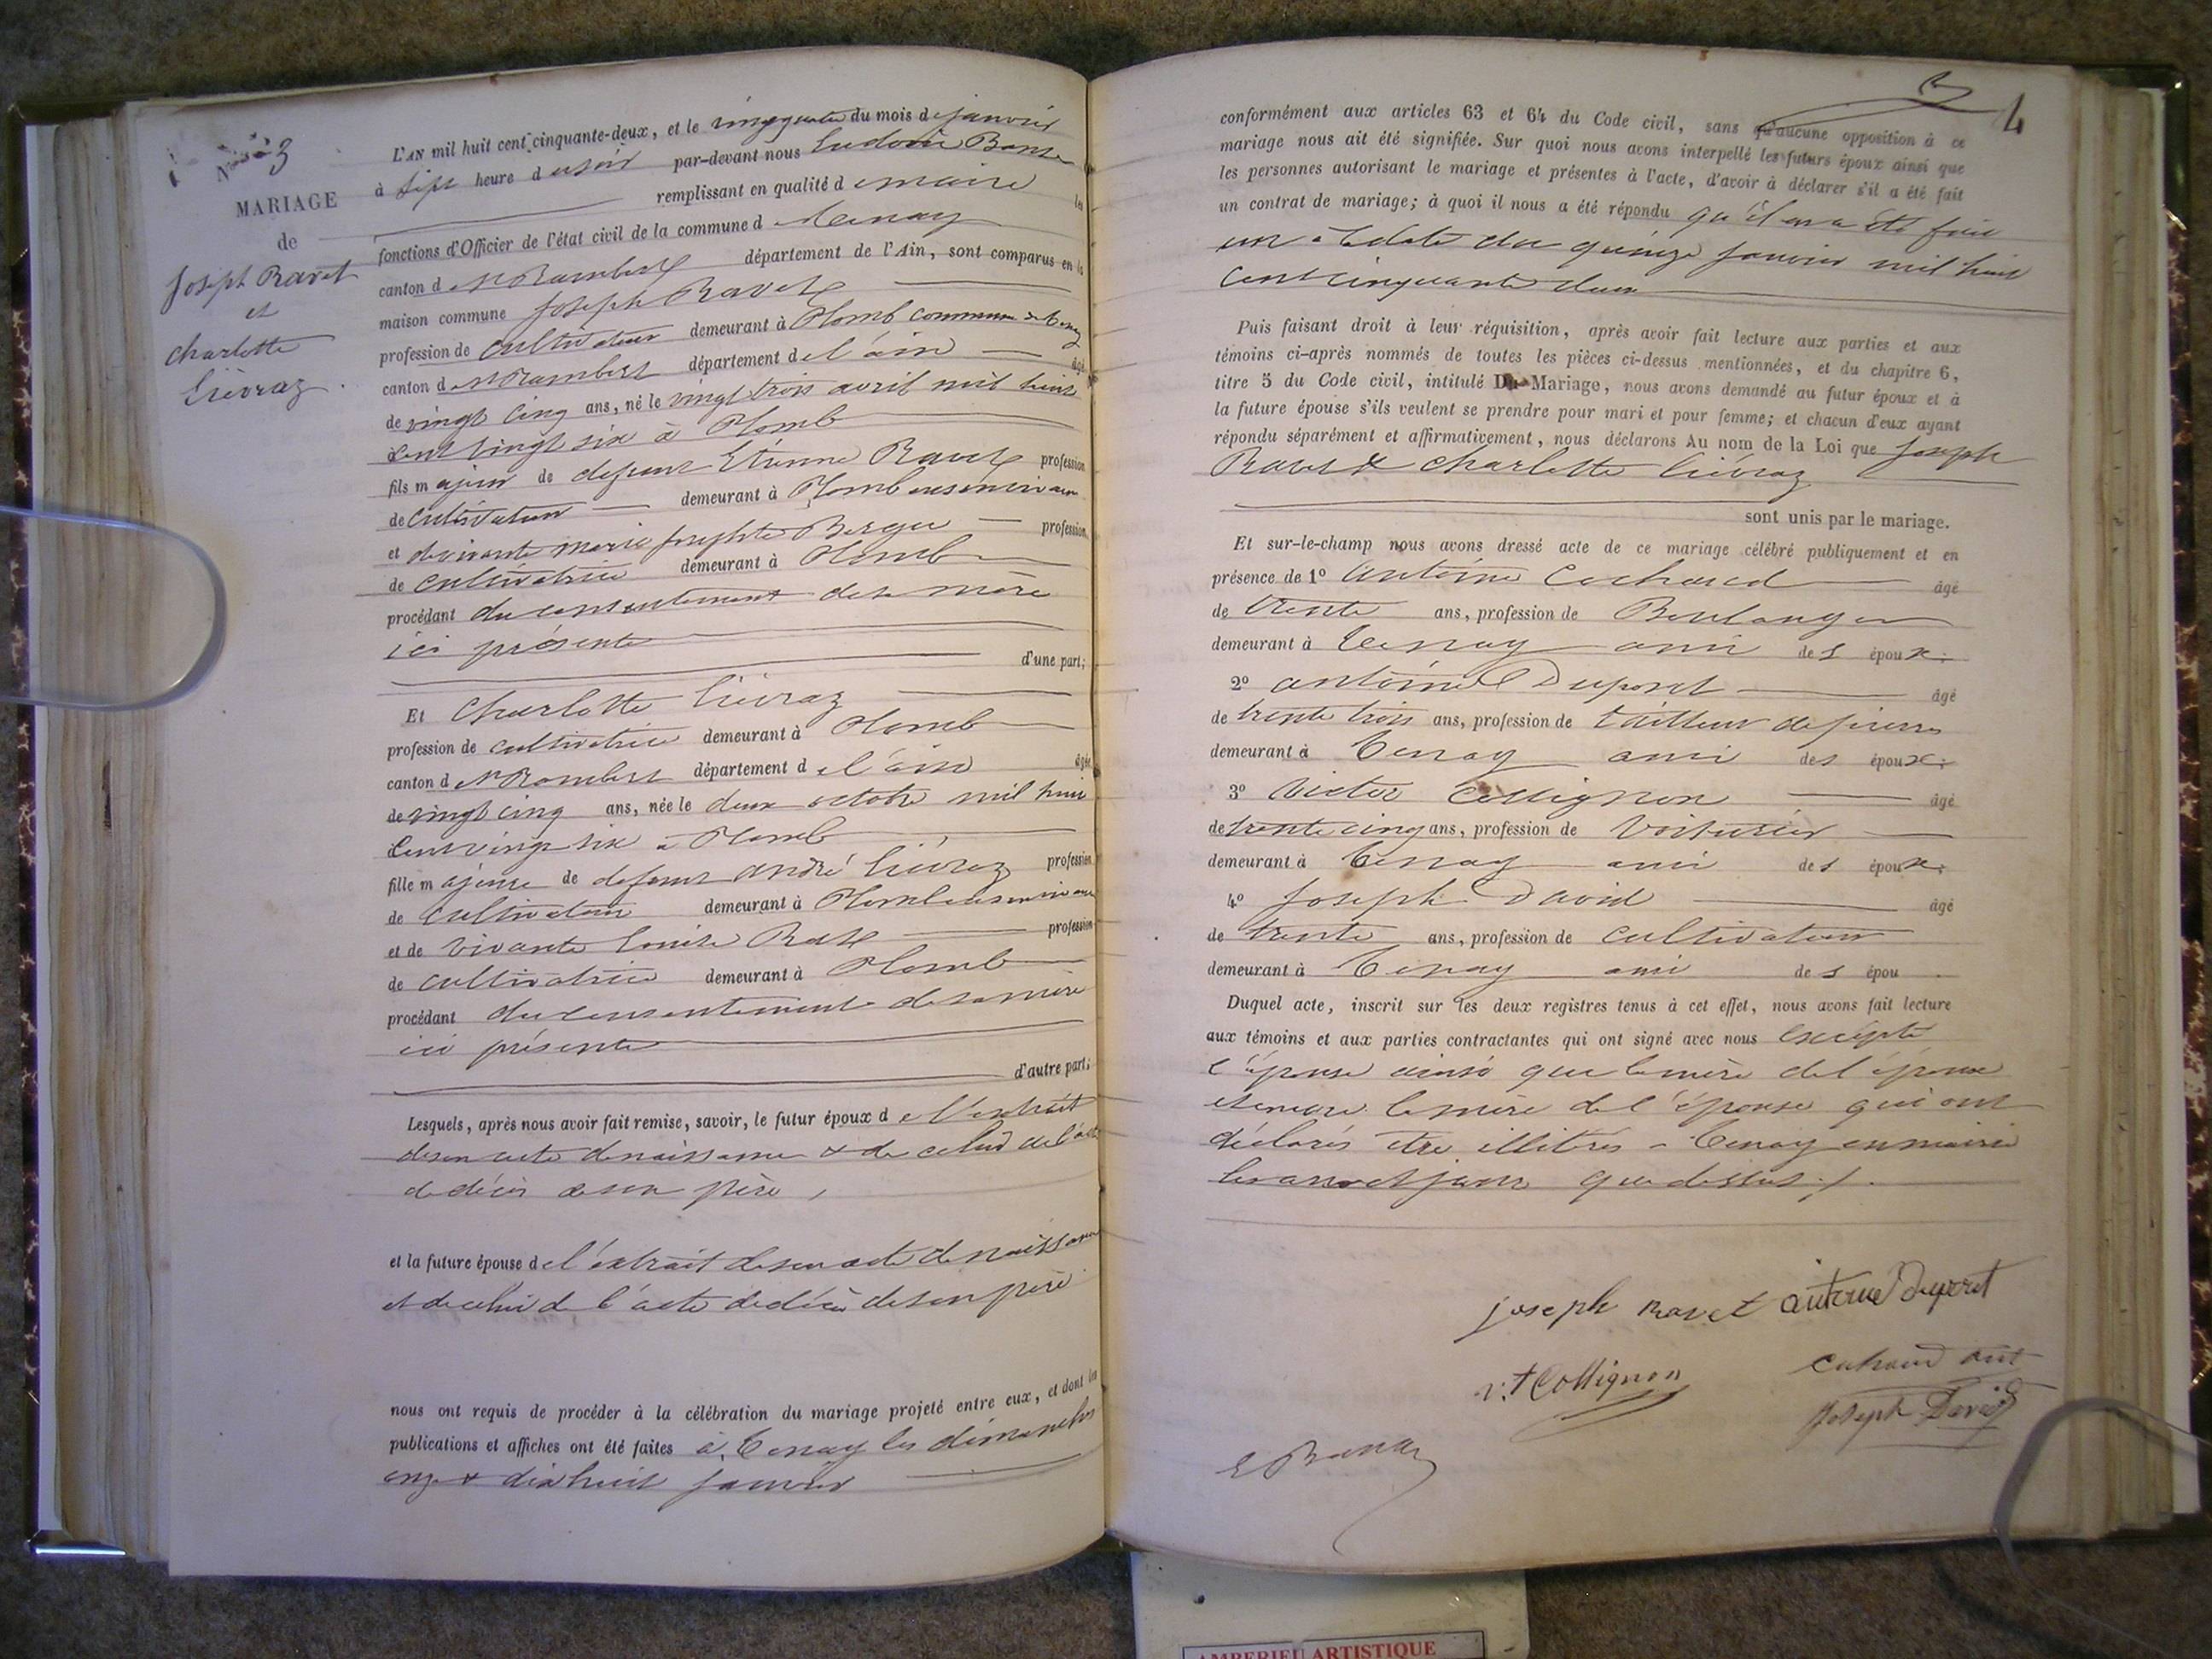 N° 3
MARIAGE
de
Joseph Ravet
et
Charlotte
Liévraz
L'AN mil huit cent cinquante-deux, et le du mois de janvier
à sept heure du soir par-devant nous Ludovic
remplissant en qualité de maire les
fonctions d'Officier de l'état civil de la commune de Tenay
canton de St Rambert département de l'Ain, sont comparus en la
maison commune Joseph Ravet
profession de cultivateur demeurant à Plomb commune de Tenay
canton de St Rambert département de l'ain âgé
de vingt cinq ans, né le vingt trois avril mil huit
cent vingt six à Plomb
fils majeur de defunt Etienne Ravet profession
de cultivateur demeurant à Plomb en son vivant
et de vivante marie josephte profession
de cultivatrice demeurant à Plomb
procédant du consentement de sa mère
ici présente
d'une part;
Et Charlotte Liévraz
profession de cultivatrice demeurant à Plomb
canton de St Rambert département de l'ain âgée
de vingt cinq ans, née le deux octobre mil huit
cent vingt six à Plomb
fille majeure de defunt andré Liévraz profession
de cultivateur demeurant à Plomb en son vivant
et de vivante Louise profession
de cultivatrice demeurant à Plomb
procédant du consentement de sa mère
ici présente
d'autre part;
Lesquels, après nous avoir fait remise, savoir, le futur époux de l'extrait
de son acte de naissance & de celui de l'acte
de décès de son père,
et la future épouse de l'extrait de son acte de naissance
et de celui de l'acte de décès de son père
nous ont requis de procéder à la célébration du mariage projeté entre eux, et dont les
publications et affiches ont été faites à Tenay les dimanches
onze & dix huit janvier
4
conformément aux articles 63 et 64 du Code civil, sans qu'aucune opposition à ce
mariage nous ait été signifiée. Sur quoi nous avons interpellé les futurs époux ainsi que
les personnes autorisant le mariage et présentes à l'acte, d'avoir à déclarer s'il a été fait
un contrat de mariage; à quoi il nous a été répondu qu'il en a été fait
un à la date du quinze janvier mil huit
cent cinquante deux
Puis faisant droit à leur réquisition, après avoir fait lecture aux parties et aux
témoins ci-après nommés de toutes les pièces ci-dessus mentionnées, et du chapitre 6,
titre 5 du Code civil, intitulé Du Mariage, nous avons demandé au futur époux et à
la future épouse s'ils veulent se prendre pour mari et pour femme; et chacun d'eux ayant
répondu séparément et affirmativement, nous déclarons Au nom de la Loi que Joseph
Ravet & Charlotte Liévraz
sont unis par le mariage.
Et sur-le-champ nous avons dressé acte de ce mariage célébré publiquement et en
présence de 1° Antoine Cochard âgé
de trente ans, profession de Boulanger
demeurant à Tenay ami des époux;
2° antoine Duport âgé
de trente trois ans, profession de tailleur de pierres
demeurant à Tenay ami des époux;
3° Victor Collignon âgé
de trente cinq ans, profession de Voiturier
demeurant à Tenay ami des époux;
4° Joseph David âgé
de trente ans, profession de cultivateur
demeurant à Tenay ami des épou
Duquel acte, inscrit sur les deux registres tenus à cet effet, nous avons fait lecture
aux témoins et aux parties contractantes qui ont signé avec nous excepté
l'épouse ainsi que la mère de l'époux
et encore la mère de l'épouse qui ont
déclarés être illitrés - Tenay en mairie
les an et jour que dessus ./.
joseph Ravet
V.t Collignon
Joseph David
AMBERIEU ARTISTIQUE